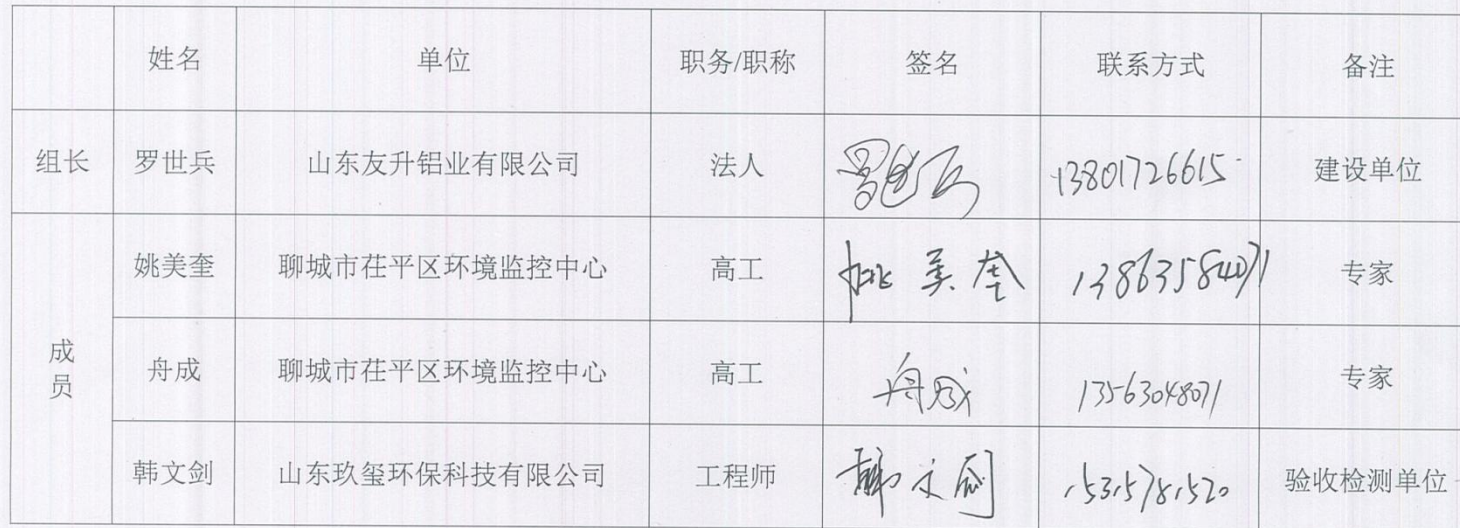 姓名 单位 职务/职称 签名 联系方式 备注
组长 罗世兵 山东友升铝业有限公司 法人 罗世兵 13801726615 建设单位
成员 姚美奎 聊城市茌平区环境监控中心 高工 姚美奎 13863584071 专家
舟成 聊城市茌平区环境监控中心 高工 舟成 13563048071 专家
韩文剑 山东玖玺环保科技有限公司 工程师 韩文剑 验收检测单位